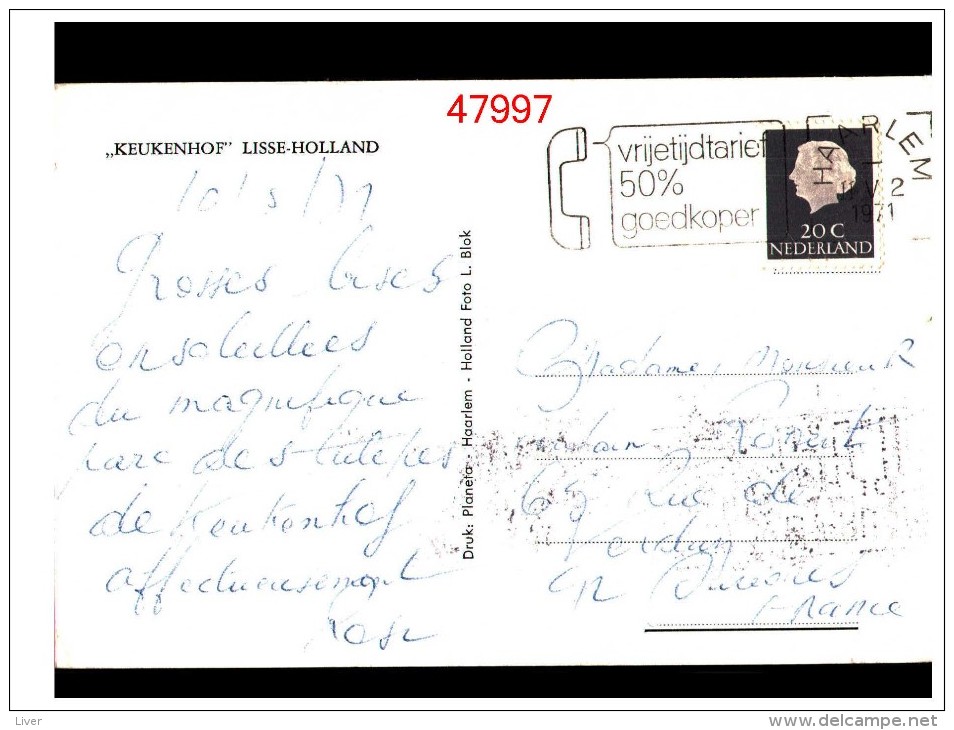 47997
„KEUKENHOF” LISSE-HOLLAND
10/5/71
Grosses bises
ensoleillées
du magnifique
parc des tulipes
de Keukenhof
affectueusement
Rose
Druk: Planeta - Haarlem - Holland Foto L. Blok
vrijetijdtarief
50%
goedkoper
HAARLEM
1971
20 C
NEDERLAND
Madame, Monsieur
Robert
65 Rue de
Verdun
92 Suresnes
France
Liver
www.delcampe.net